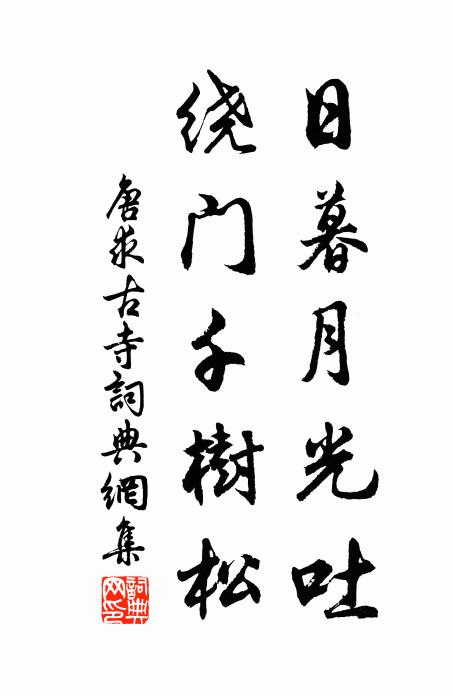 日暮月光吐
绕门千樹松
唐求古寺詞典網集
詞典網印